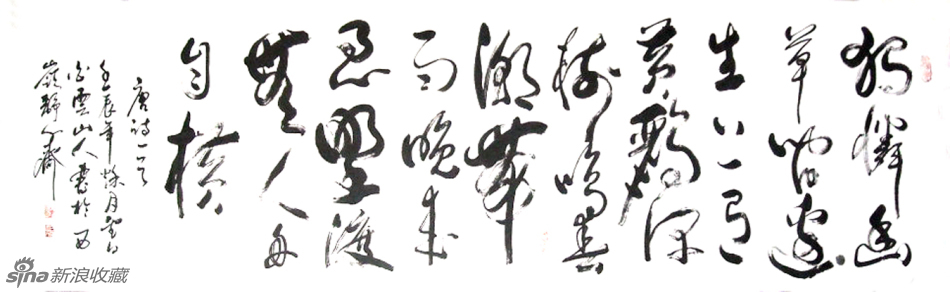 獨憐幽
草澗邊
生上有
黄鸝深
樹鳴春
潮帶
雨晚来
急野渡
無人舟
自横
唐詩一首
壬辰年秋月
白雲山人書於西
嶺靜心齋
sina新浪收藏